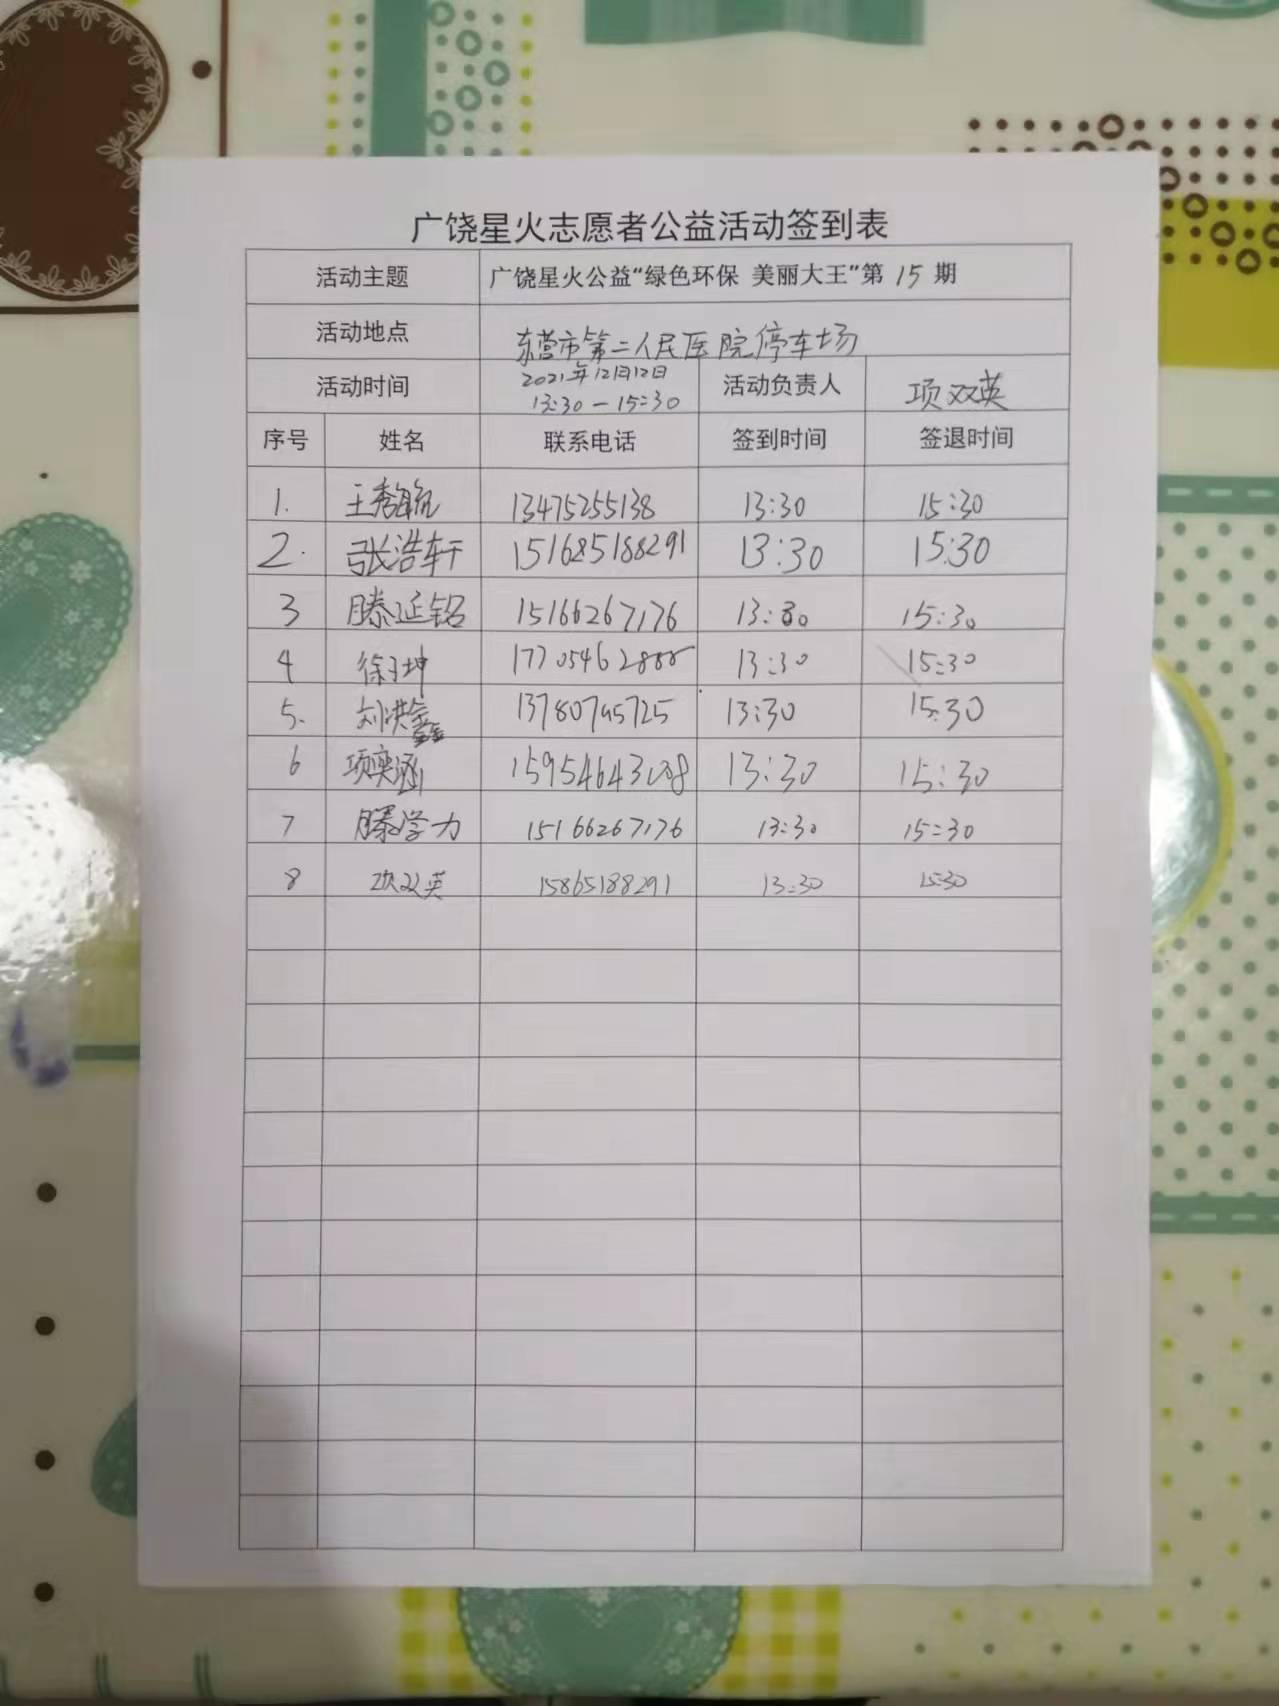 广饶星火志愿者公益活动签到表
活动主题 广饶星火公益“绿色环保 美丽大王”第 15 期
活动地点 东营市第二人民医院停车场
活动时间 2021年12月12日 13:30-15:30 活动负责人 项双英
序号 姓名 联系电话 签到时间 签退时间
1. 王秀毓 13475255138 13:30 15:30
2. 张浩轩 151685188291 13:30 15:30
3 滕延铭 15166267176 13:30 15:30
4 徐子坤 17705462888 13:30 15:30
5. 刘洪鑫 13780795725 13:30 15:30
6 项奕涵 15954643008 13:30 15:30
7 滕学力 15166267176 13:30 15:30
8 项双英 15865188291 13:30 15:30